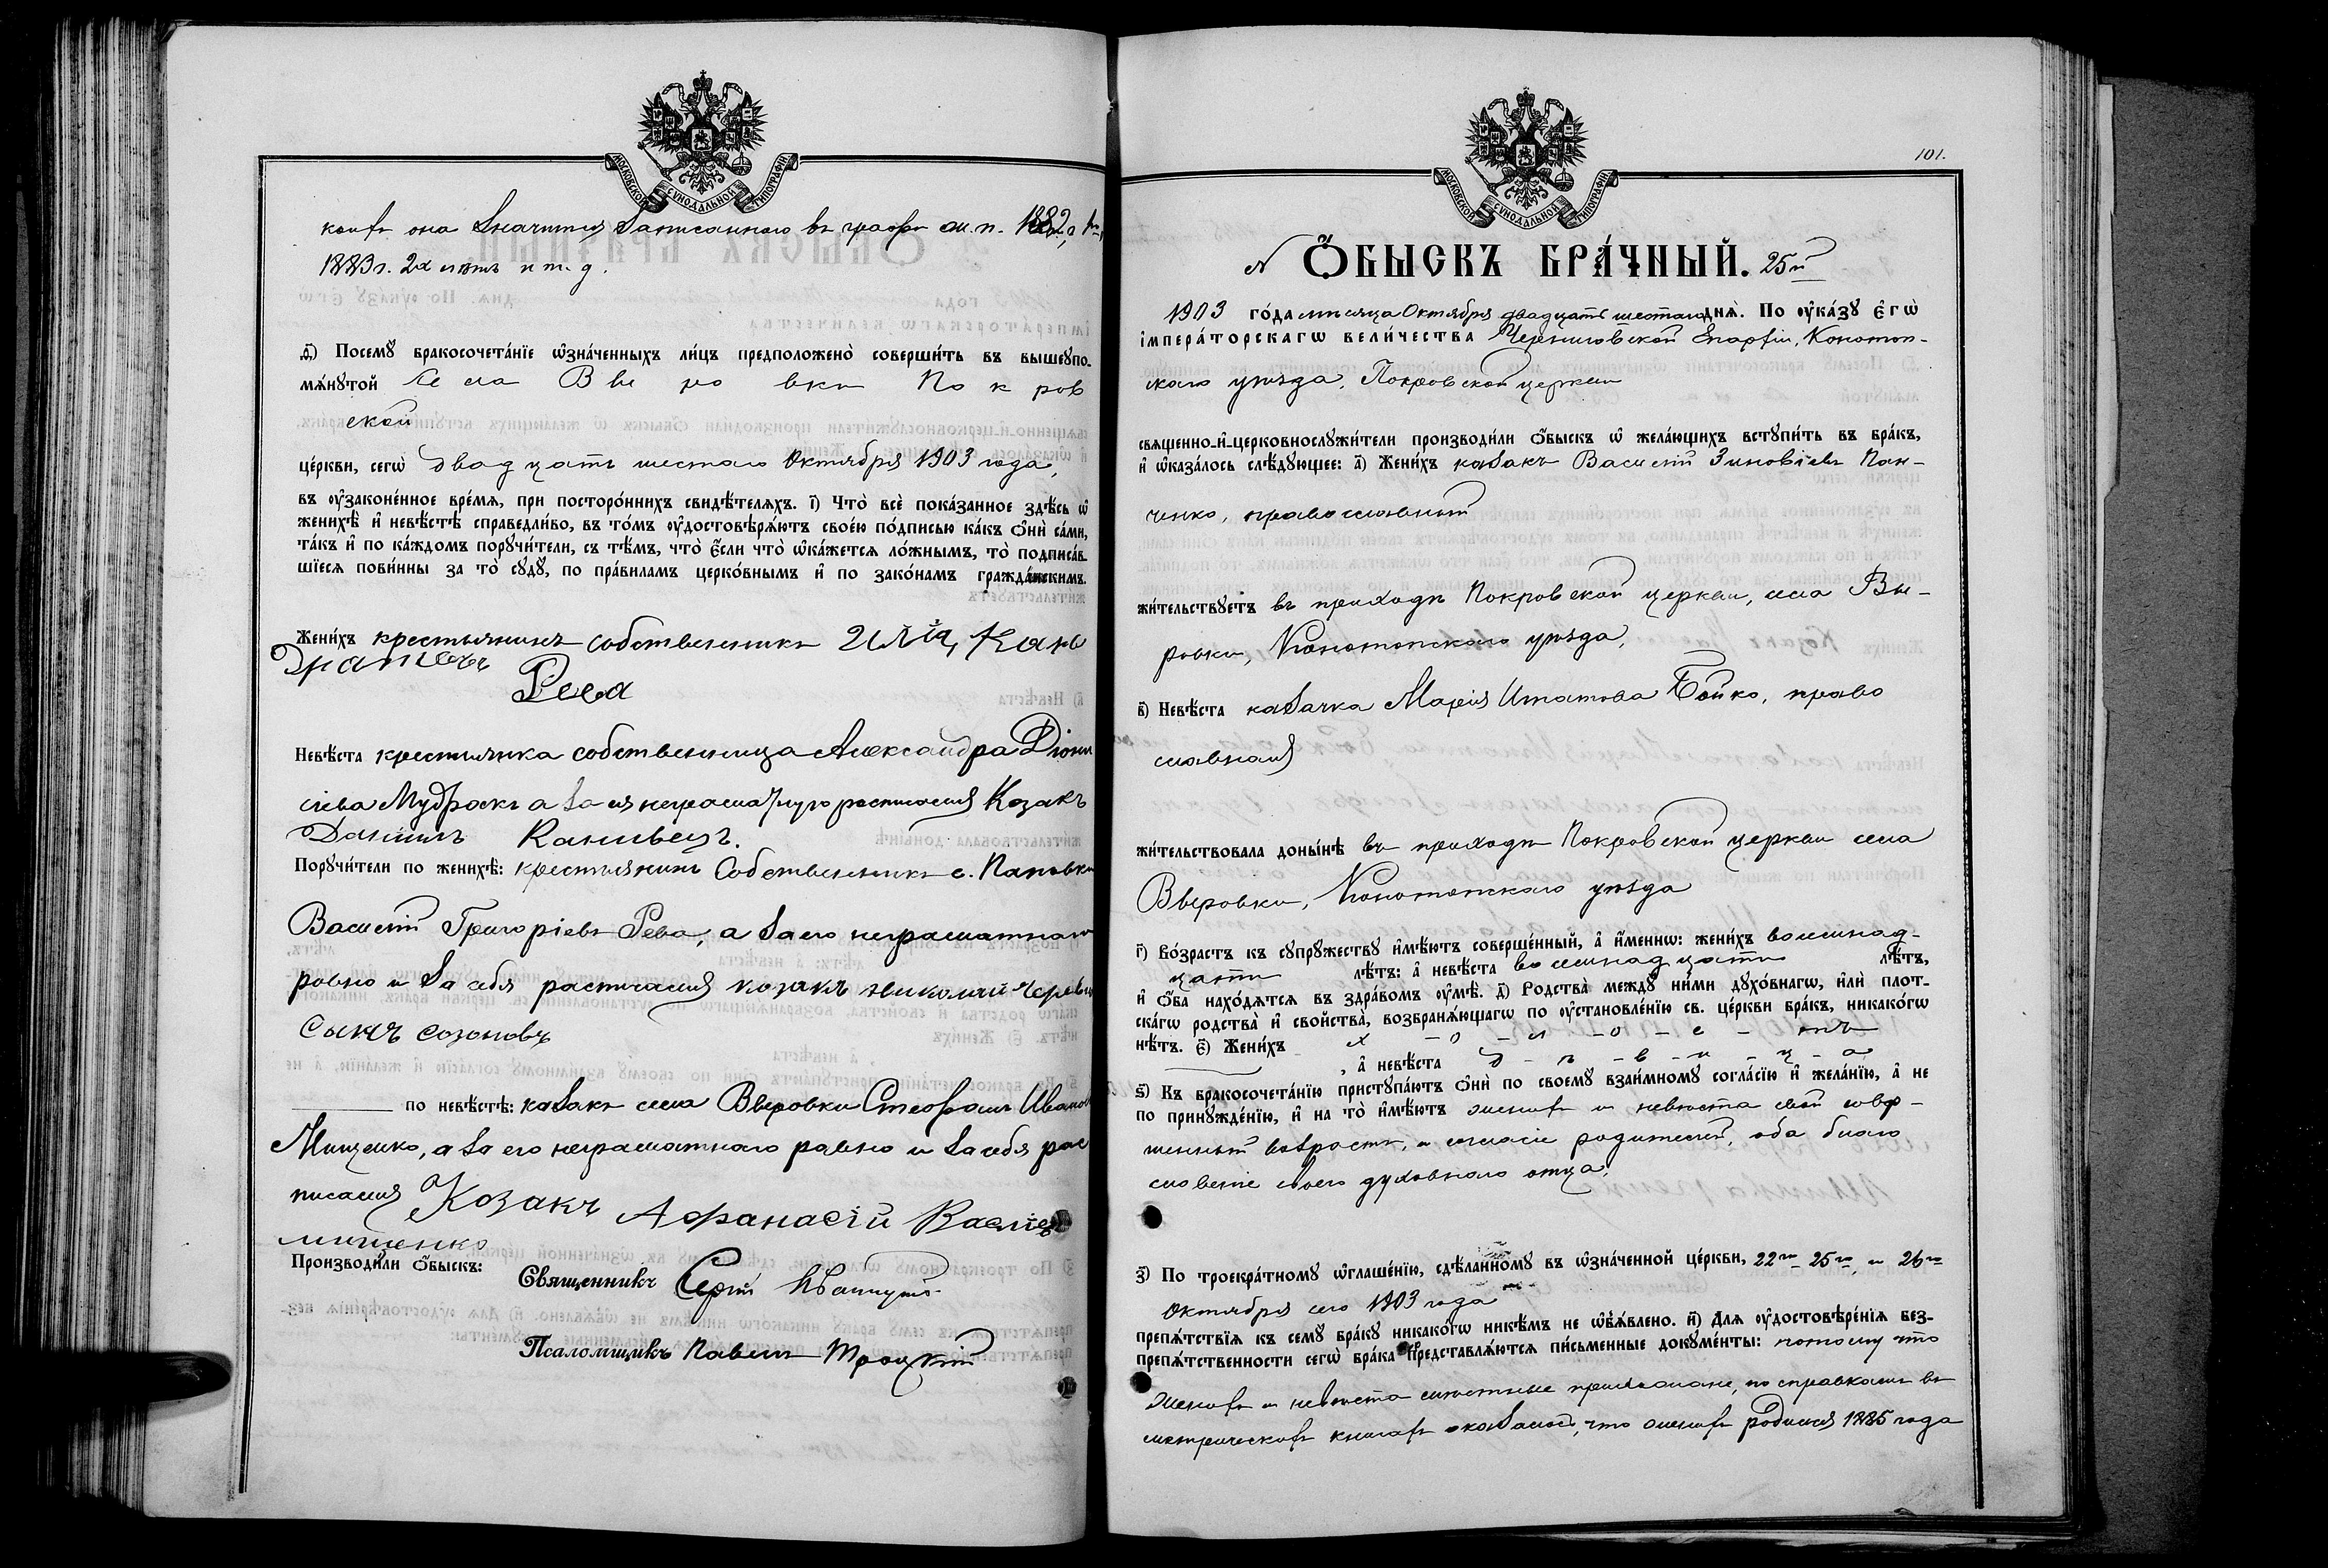 МОСКОВСКОЙ СУНОДАЛЬНОЙ ТИПОГРАФІИ
она значится записанною въ графѣ м. п. 1882 г.
1883 г. 2х лѣтъ и т. д.
д҃) Посемꙋ бракосочета́нїе ѡ҆зна́ченныхъ ли́цъ предположено̀ соверши́ть въ вышеꙋпо-
мѧ́нꙋтой села Выровки Покров
ской
це́ркви, сегѡ̀ двадцать шестаго Октября 1903 года,
въ ᲂу҆законе́нное вре́мѧ, при посторо́ннихъ свидѣ́телѧхъ. і҃) Что̀ всѐ пока́занное здѣ́сь ѡ҆
женихѣ̀ и҆ невѣ́стѣ справедли́во, въ то́мъ ᲂу҆достовѣрѧ́ютъ свое́ю по́дписью ка́къ ѻ҆нѝ са́ми,
та́къ и҆ по ка́ждомъ порꙋчи́тели, съ тѣ́мъ, что̀ є҆́сли что̀ ѡ҆ка́жетсѧ ло́жнымъ, то̀ подписа́в-
шїесѧ пови́нны за то̀ сꙋдꙋ̀, по пра́виламъ церко́внымъ и҆ по зако́намъ гражда́нскимъ.
Жени́хъ крестьянинъ собственникъ Илія Кан
дратіевъ
Рева
Невѣ́ста крестьянка собственница Александра Діони
сіева Мудракъ а за ея неграматную расписался Козакъ
Даніилъ Канивецъ.
Порꙋчи́тели по женихѣ̀: крестьянинъ Собственникъ с. Поповки
Василій Григоріевъ Рева, а за его неграматнаго
равно и за себя расписался козакъ николай
сынъ созоновъ
по невѣ́стѣ: казакъ села Выровки Стефанъ Иванов
Мищенко, а за его неграматнаго равно и за себя рас
писался Козакъ Афанасій Васліевъ
мищенко
Производи́ли ѻ҆́быскъ:
Священникъ Сергій
Псаломщикъ Павелъ Троцкій
101.
МОСКОВСКОЙ СУНОДАЛЬНОЙ ТИПОГРАФІИ
N Ѻ҆́БЫСКЪ БРА́ЧНЫЙ. 25й
1903 го́да мѣсяца Октября двадцать шестаго днѧ̀. По ᲂу҆ка́зꙋ є҆гѡ̀
і҆мпера́торскагѡ вели́чества Черниговской Епархіи, Конотоп-
скаго уѣзда, Покровской церкви
свѧщенно-и҆-церковнослꙋжи́тели производи́ли ѻ҆́быскъ ѡ҆ жела́ющихъ встꙋпи́ть въ бра́къ,
и҆ ѡ҆каза́лось слѣ́дꙋющее: а҃) Жени́хъ казакъ Василій Зиновіевъ Пан-
ченко, православный
жи́тельствꙋетъ въ приходѣ Покровской церкви, села Вы-
ровки, Конотопскаго уѣзда,
в҃) Невѣ́ста казачка Марія Игнатова Бойко, право
славная
жи́тельствовала доны́нѣ въ приходѣ Покровской церкви села
Выровки, Конотопскаго уѣзда
г҃) Во́зрастъ къ сꙋпрꙋ́жествꙋ и҆мѣ́ютъ соверше́нный, а҆ и҆́меннѡ: жени́хъ восемнад-
цати лѣ́тъ: а҆ невѣ́ста восемнадцати лѣ́тъ,
и҆ ѻ҆́ба нахо́дѧтсѧ въ здра́вомъ ᲂу҆мѣ̀. д҃) Родства̀ междꙋ ни́ми дꙋхо́внагѡ, и҆лѝ плот-
ска́гѡ родства̀ и҆ сво́йства̀, возбранѧ́ющагѡ по ᲂу҆становле́нїю св. це́ркви бра́къ, никако́гѡ
нѣ́тъ. є҃) Жени́хъ х - о - л - о - с - тъ
, а҆ невѣ́ста д - ѣ - в - и - ц - а
ѕ҃) Къ бракосочета́нїю пристꙋпа́ютъ ѻ҆нѝ по своемꙋ̀ взаи́мномꙋ согла́сїю и҆ жела́нїю, а҆ не
по принꙋжде́нїю, и҆ на то̀ и҆мѣ́ютъ женихъ и невѣста свой совер-
шенный возрастъ, и согласіе родителей, оба благо
словеніе своего духовнаго отца,
з҃) По троекра́тномꙋ ѡ҆глаше́нїю, сдѣ́ланномꙋ въ ѡ҆зна́ченной це́ркви, 22го 25го, и 26го
Октября сего 1903 года
препѧ́тствїѧ къ семꙋ̀ бра́кꙋ никако́гѡ никѣ́мъ не ѡ҆б̾ѧ́влено. и҃) Длѧ ᲂу҆достовѣре́нїѧ без-
препѧ́тственности сегѡ̀ бра́ка представлѧ́ютсѧ пи́сьменные докꙋме́нты: потому что
женихъ и невѣста мѣстные прихожане, по справкамъ въ
метрическихъ книгахъ оказалось, что женихъ родился 1885 года